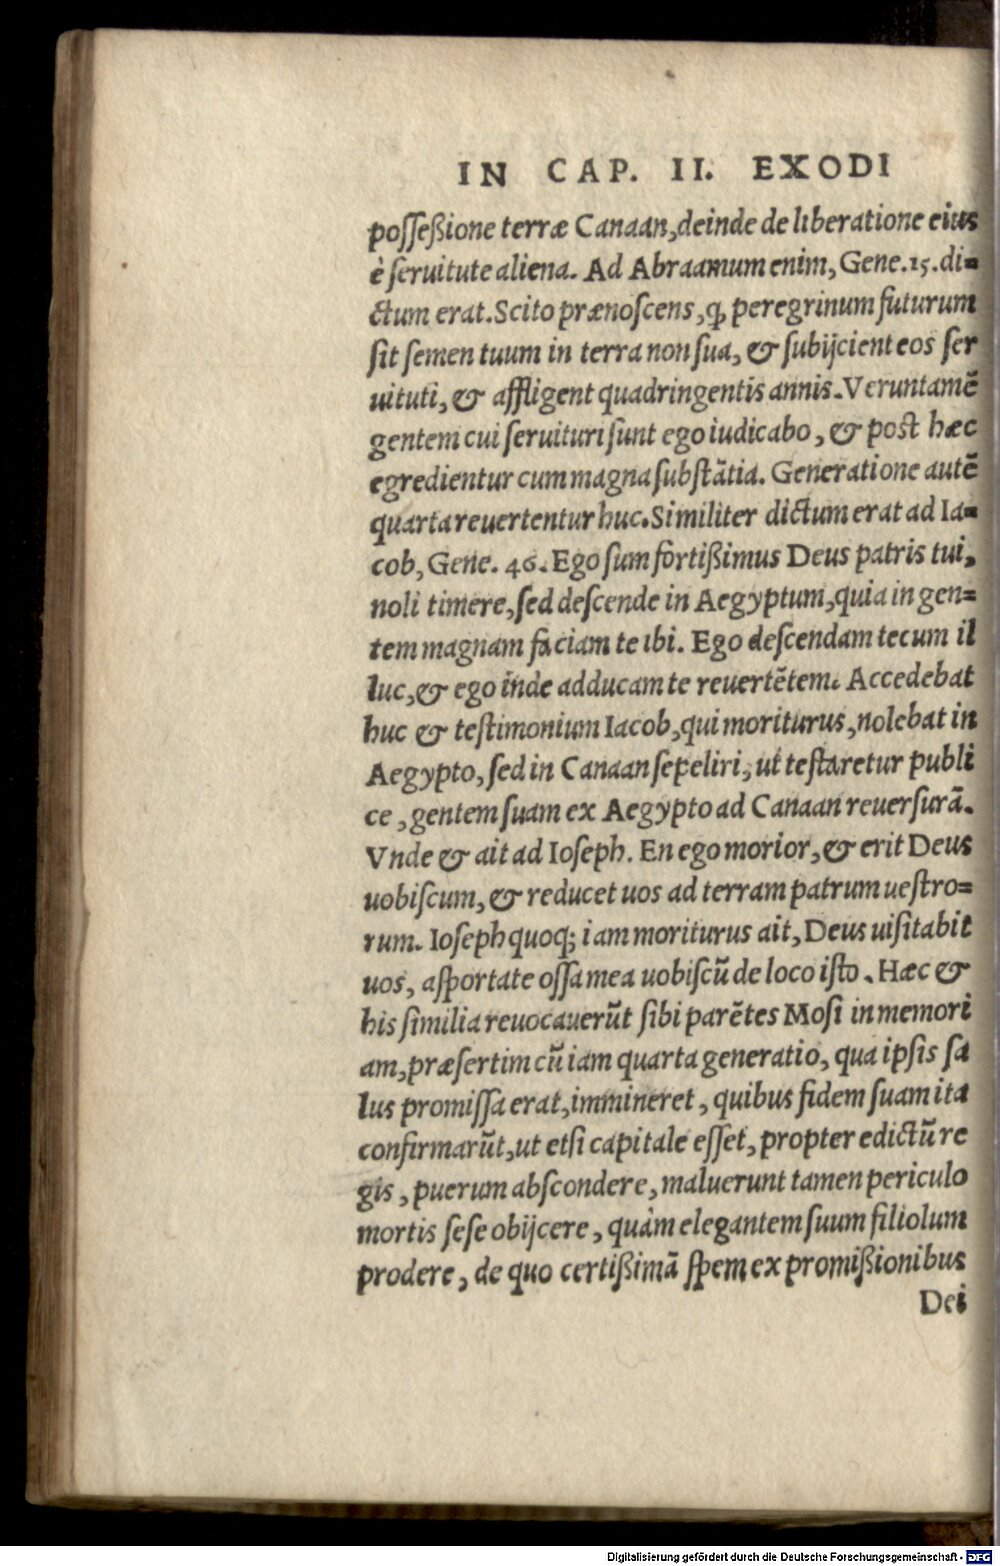 IN CAP. II. EXODI
poſſeßione terræ Canaan, deinde de liberatione eius
è ſeruitute aliena. Ad Abraamum enim, Gene. 15. di=
ctum erat. Scito prænoſcens, ꝙ peregrinum futurum
ſit ſemen tuum in terra non ſua, & ſubijcient eos ſer
uituti, & affligent quadringentis annis. Veruntamẽ
gentem cui ſeruituri ſunt ego iudicabo, & post hæc
egredientur cum magna ſubſtãtia. Generatione autẽ
quarta reuertentur huc. Similiter dictum erat ad Ia=
cob, Gene. 46. Ego ſum fortißimus Deus patris tui,
noli timere, ſed deſcende in Aegyptum, quia in gen=
tem magnam faciam te ibi. Ego deſcendam tecum il
luc, & ego inde adducam te reuertẽtem. Accedebat
huc & teſtimonium Iacob, qui moriturus, nolebat in
Aegypto, ſed in Canaan ſepeliri, ut teſtaretur publi
ce, gentem ſuam ex Aegypto ad Canaan reuerſurã.
Vnde & ait ad Ioſeph. En ego morior, & erit Deus
uobiſcum, & reducet uos ad terram patrum ueſtro=
rum. Ioſeph quoq; iam moriturus ait, Deus uiſitabit
uos, aſportate oſſa mea uobiſcũ de loco iſto. Hæc &
his ſimilia reuocauerũt ſibi parẽtes Moſi in memori
am, præſertim cũ iam quarta generatio, qua ipſis ſa
lus promiſſa erat, immineret, quibus fidem ſuam ita
confirmarũt, ut etſi capitale eſſet, propter edictũ re
gis, puerum abſcondere, maluerunt tamen periculo
mortis ſeſe obijcere, quàm elegantem ſuum filiolum
prodere, de quo certißimã ſpem ex promißionibus
Dei
Digitalisierung gefördert durch die Deutsche Forschungsgemeinschaft - DFG